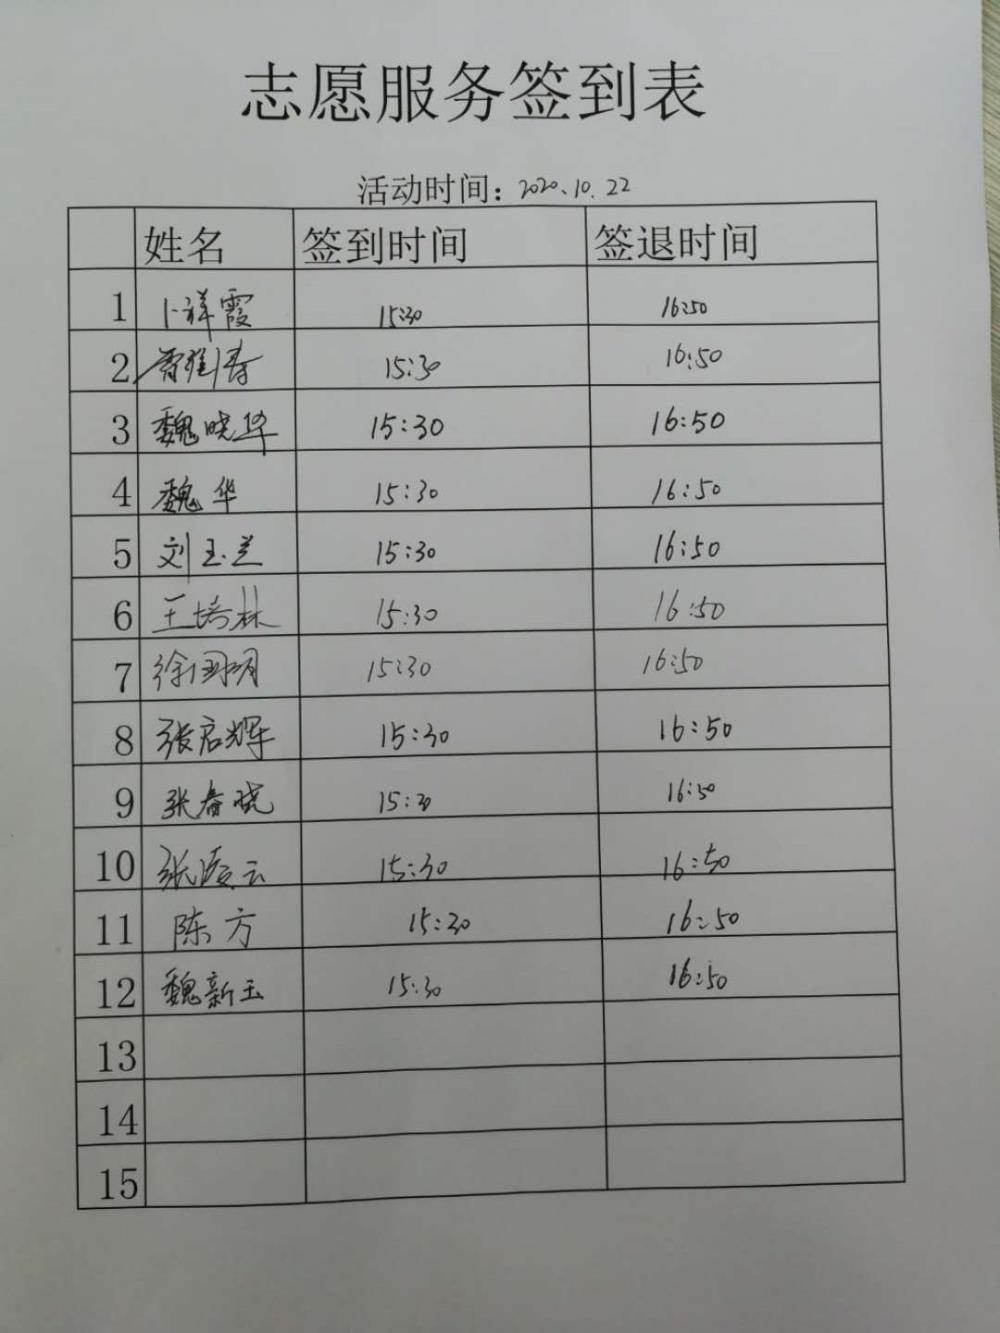 志愿服务签到表
活动时间：2020.10.22
姓名 签到时间 签退时间
1 卜祥霞 15:30 16:50
2 15:30 16:50
3 魏晓华 15:30 16:50
4 魏华 15:30 16:50
5 刘玉兰 15:30 16:50
6 王培林 15:30 16:50
7 徐国明 15:30 16:50
8 张启辉 15:30 16:50
9 张春晓 15:30 16:50
10 张凌云 15:30 16:50
11 陈方 15:30 16:50
12 魏新玉 15:30 16:50
13
14
15